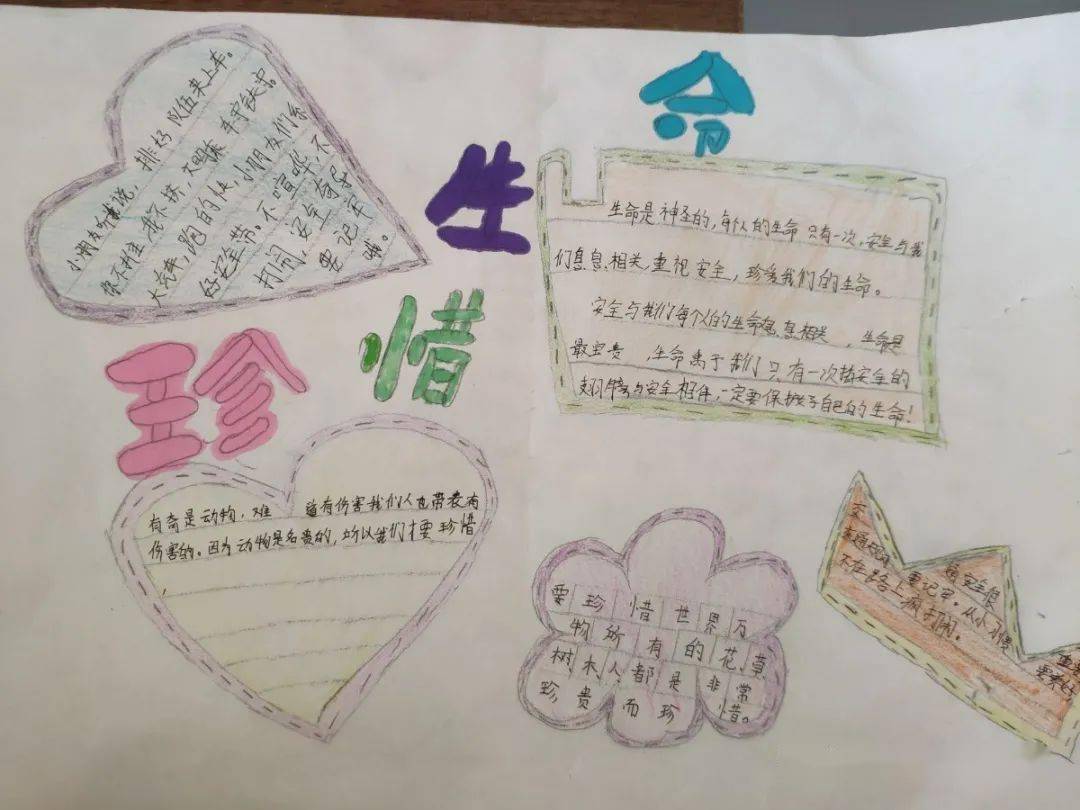 珍惜生命
小朋友听我说，排好队伍来上车。
你不推，我不挤，文明乘车守秩序。
大汽车，跑的快，小朋友们系
好安全带。不喧哗，不
打闹，安全
要记牢
哦。
生命是神圣的，每人的生命只有一次，安全与我
们息息相关，重视安全，珍爱我们的生命。
安全与我们每个人的生命息息相关，生命是
最宝贵，生命离于我们只有一次插安全的
翅膀与安全相伴，一定要保护好自己的生命！
有奇是动物，难道有伤害我们人也带表有
伤害的。因为动物是名贵的，所以我们才要珍惜
要珍惜世界万
物所有的花、草、
树、木、人、都是非常
珍贵而珍惜。
交
安全很
要记牢。从小
不在路上疯打闹。